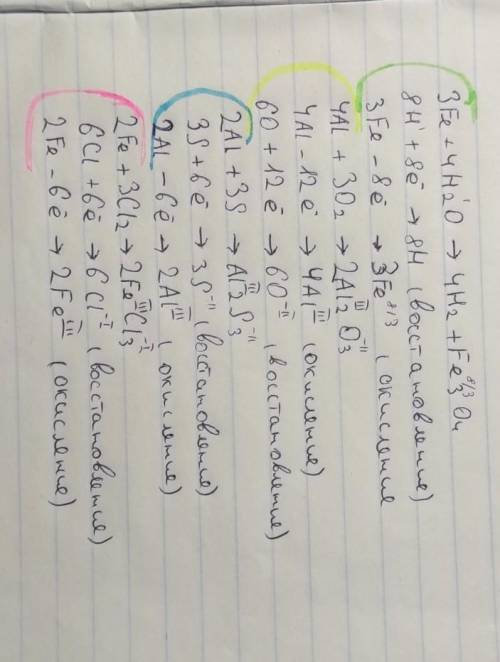 3Fe + 4H₂ᴵO → 4H₂ + Fe₃⁸ᐟ³O₄
8Hᴵ + 8ē → 8H (восстановление)
3Fe - 8ē → 3Fe⁸ᐟ³ (окисление
4Al + 3O₂ → 2Al₂ᴵᴵᴵO₃⁻ᴵᴵ
4Al - 12ē → 4Alᴵᴵᴵ (окисление)
6O + 12ē → 6O⁻ᴵᴵ (восстановление)
2Al + 3S → Al₂ᴵᴵᴵS₃⁻ᴵᴵ
3S + 6ē → 3S⁻ᴵᴵ (восстановление)
2Al - 6ē → 2Alᴵᴵᴵ (окисление)
2Fe + 3Cl₂ → 2FeᴵᴵᴵCl₃⁻ᴵ
6Cl + 6ē → 6Cl⁻ᴵ (восстановление)
2Fe - 6ē → 2Feᴵᴵᴵ (окисление)